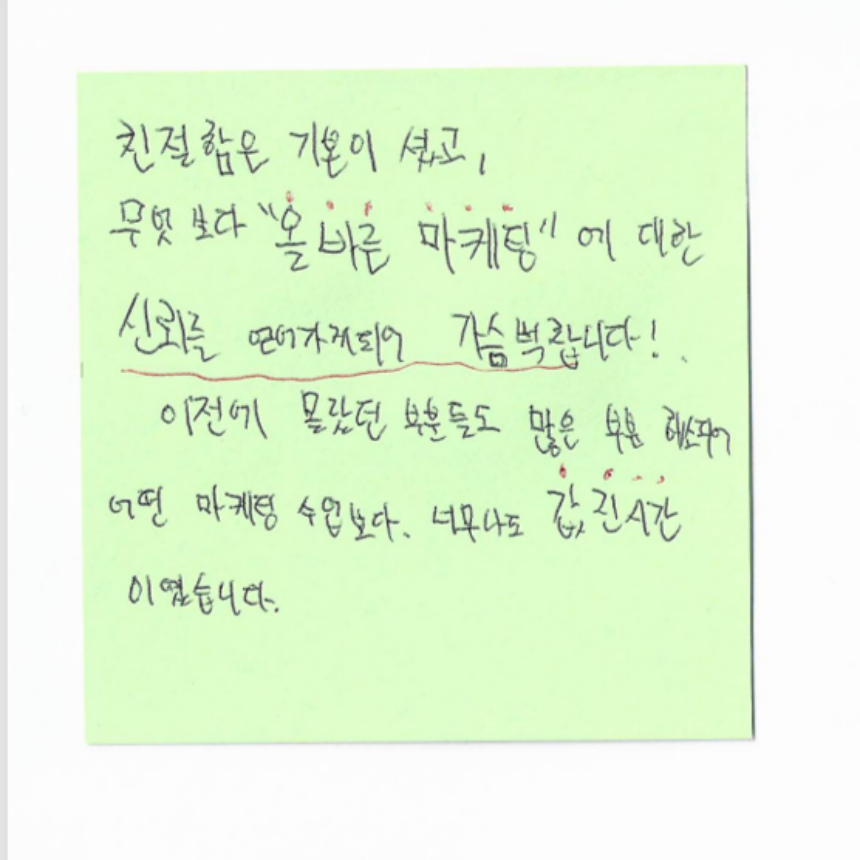 친절함은 기본이 셨고,
무엇 보다 "올바른 마케팅" 에 대한
신뢰를 얻어가게되어 가슴 벅찹니다!
이전에 몰랐던 부분들도 많은 부분 해소되어
어떤 마케팅 수업보다. 너무나도 값진시간
이였습니다.